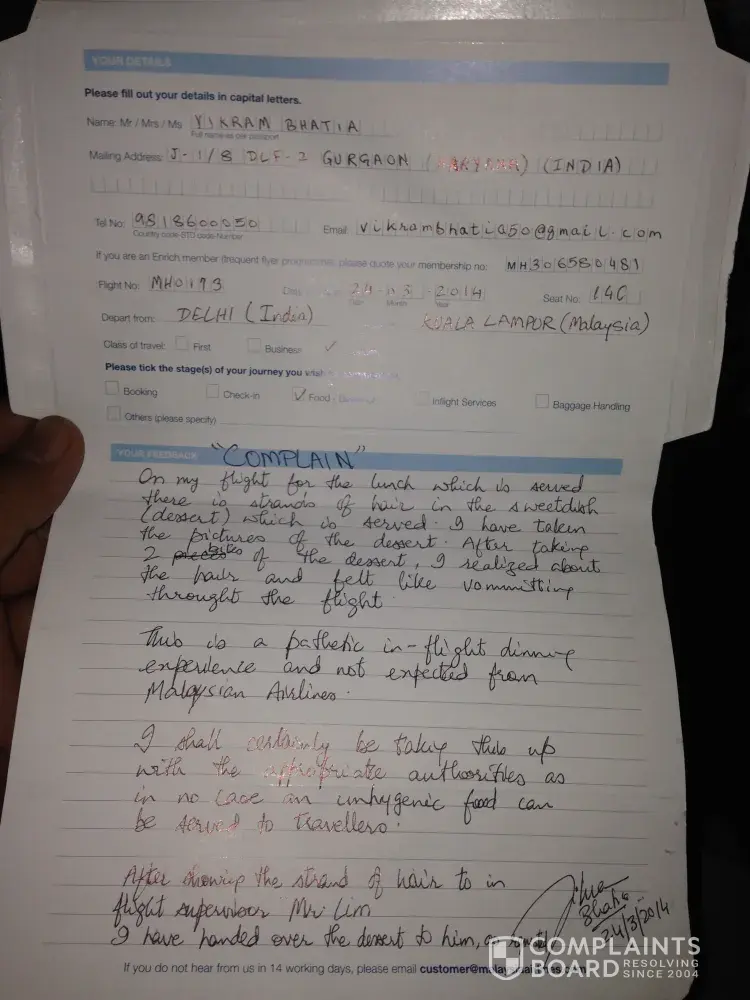 YOUR DETAILS
Please fill out your details in capital letters.
Name: Mr / Mrs / Ms VIKRAM BHATIA
Full name as per passport
Mailing Address: J-1/8 DLF-2 GURGAON (HARYANA) (INDIA)
Tel No: 9818600050 Email vikrambhatia50@gmail.com
Country code-STD code-Number
If you are an Enrich member (frequent flyer programme), please quote your membership no: MH306580481
Flight No: MH0193 Date 24-03-2014 Seat No: 14C
Day Month Year
Depart from: DELHI (India) KUALA LAMPUR (Malaysia)
Class of travel: First Business ✓
Please tick the stage(s) of your journey you wish
Booking Check-in ✓ Food Inflight Services Baggage Handling
Others (please specify)
YOUR FEEDBACK "COMPLAIN"
On my flight for the lunch which is served
there is strands of hair in the sweetdish
(dessert) which is served. I have taken
the pictures of the dessert. After taking
2 pieces bites of the dessert, I realized about
the hair and felt like vommitting
throught the flight.
This is a pathetic in-flight dinning
experience and not expected from
Malaysian Airlines.
I shall certainly be taking this up
with the appropriate authorities as
in no case an unhygenic food can
be served to travellers.
After showing the strand of hair to in
flight supervisor Mr Lim
I have handed over the desert to him, as
Bhatia
24/3/2014
If you do not hear from us in 14 working days, please email customer@malaysiaairlines.com
COMPLAINTS
BOARD RESOLVING
SINCE 2004